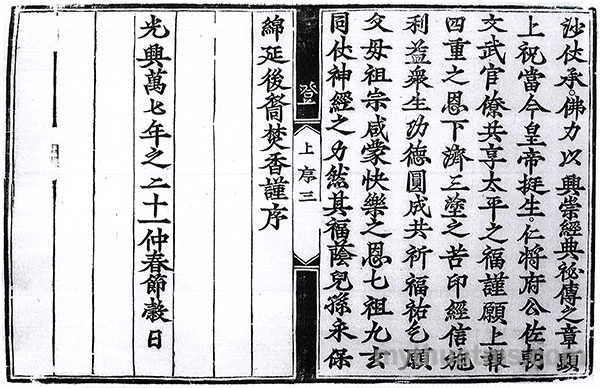 沙仗承佛力以興崇經典祕傳之章願
上祝當今皇帝挺生仁將府公佐朝
文武官僚共享太平之福謹願上報
四重之恩下濟三塗之苦印經信施
利益衆生功德圓成共祈福祐乞願
父母祖宗咸蒙快樂之恩七祖九玄
同仗神經之力然其福蔭兒孫永保
登
上序三
綿延後裔焚香謹序
光興萬七年之二十一仲春節穀日